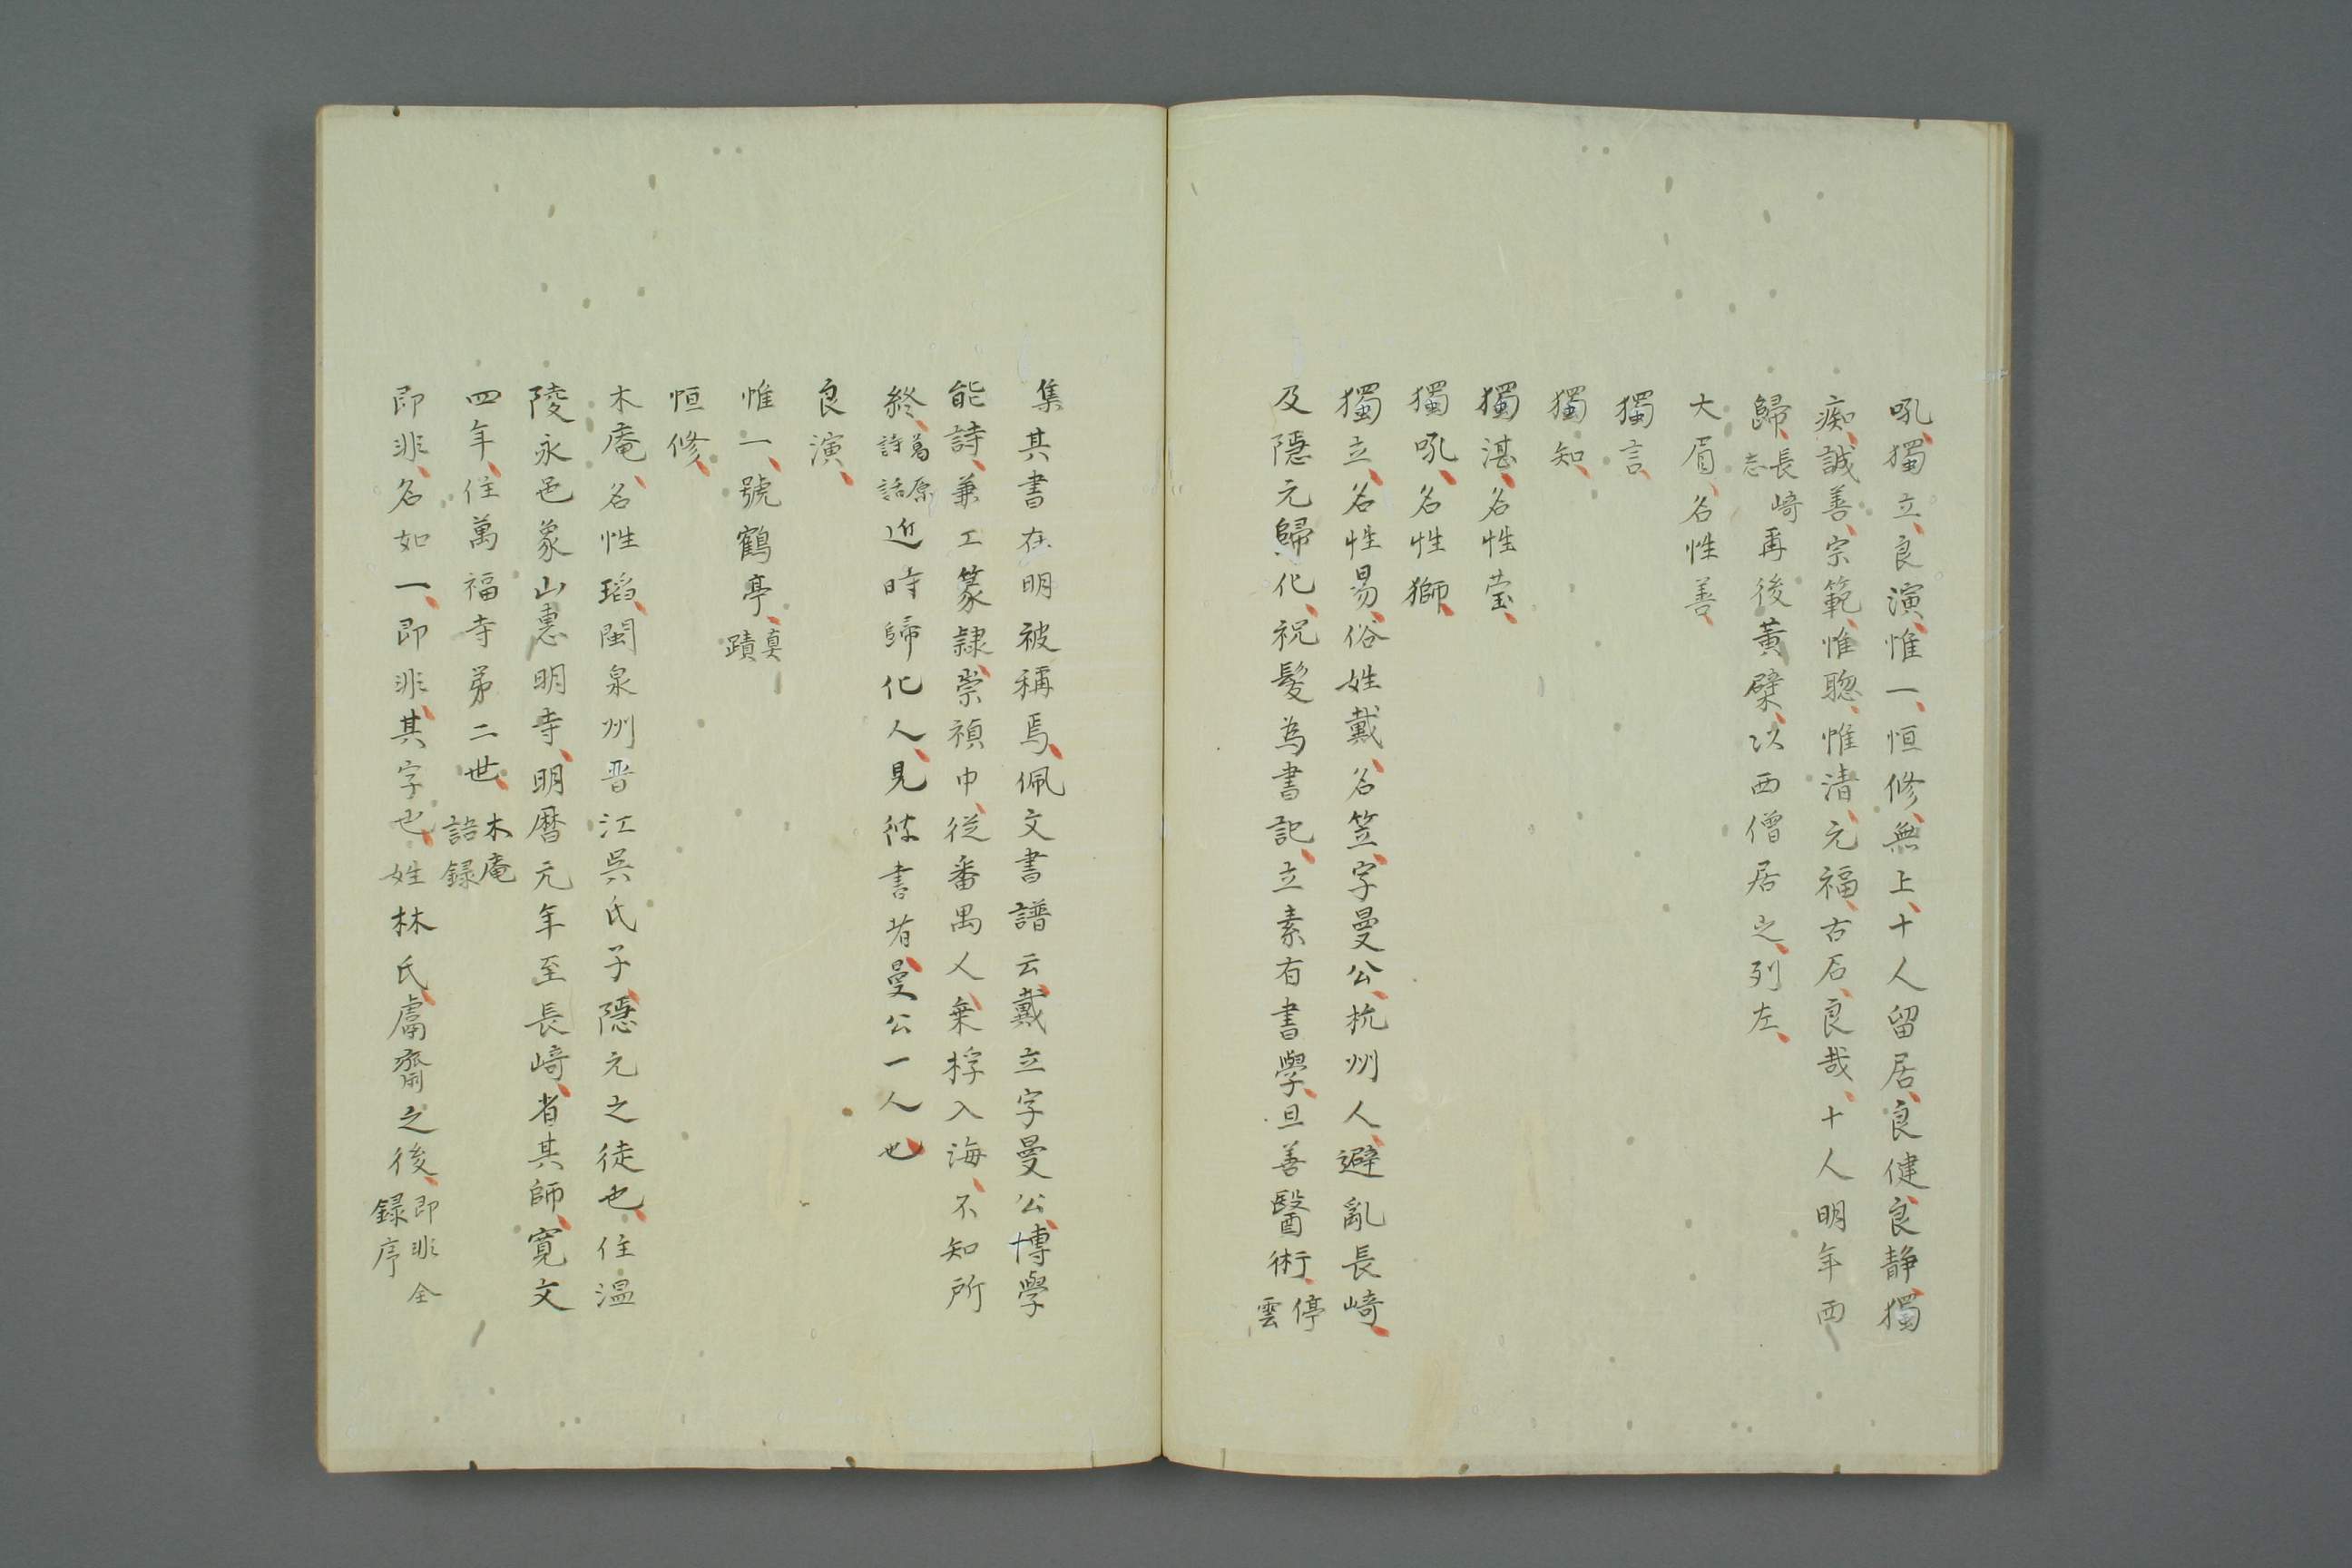 吼、獨立、良演、惟一、恒修、無上、十人留居、良健、良静、獨
痴、誠善、宗範、惟聰、惟清、元福、古石、良哉、十人明年西
歸、長崎志再後黃檗、以西僧居之、列左、
大眉、名性善、
獨言、
獨知、
獨湛、名性莹、
獨吼、名性獅、
獨立、名性易、俗姓戴、名笠、字曼公、杭州人、避亂長崎、
及隱元歸化、祝髮為書記、立素有書學、且善醫術、停雲
集其書在明被稱焉、佩文書譜云、戴立字曼公、博學
能詩、兼工篆隷、崇禎中、從番禺人、乗桴入海、不知所
終、葛原詩話近時歸化人、見彼書者、曼公一人也、
良演、
惟一、號鶴亭、真蹟
恒修、
木庵、名性瑫、閩泉州晋江呉氏子、隱元之徒也、住温
陵永邑象山惠明寺、明曆元年至長崎、省其師、寛文
四年、住萬福寺第二世、木庵語録
即非、名如一、即非、其字也、姓林氏、鬳齋之後、即非全録序